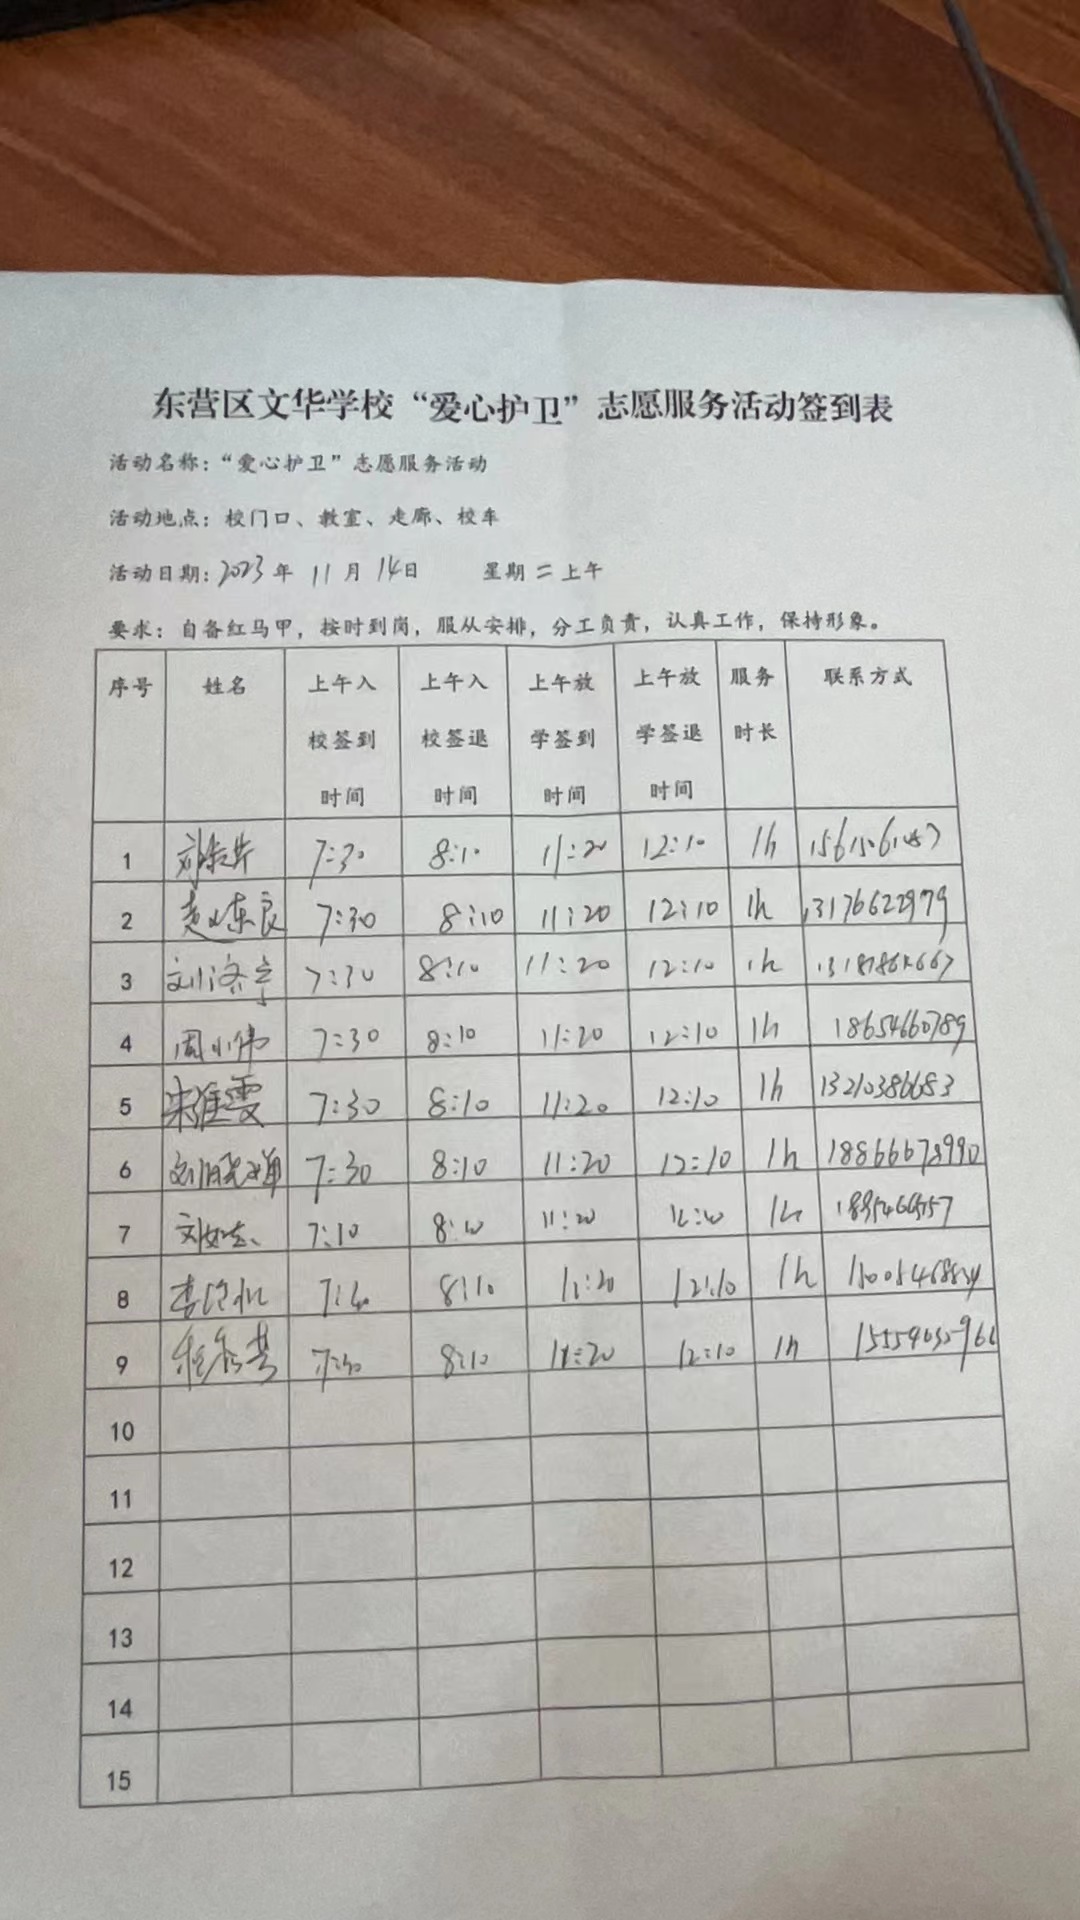 东营区文华学校“爱心护卫”志愿服务活动签到表
活动名称：“爱心护卫”志愿服务活动
活动地点：校门口、教室、走廊、校车
活动日期：2023年 11月 14日 星期二上午
要求：自备红马甲，按时到岗，服从安排，分工负责，认真工作，保持形象。
序号 姓名 上午入校签到时间 上午入校签退时间 上午放学签到时间 上午放学签退时间 服务时长 联系方式
1 7:30 8:10 11:20 12:10 1h
2 7:30 8:10 11:20 12:10 1h 13176622979
3 7:30 8:10 11:20 12:10 1h
4 周小伟 7:30 8:10 11:20 12:10 1h 18654660789
5 7:30 8:10 11:20 12:10 1h 13210386683
6 7:30 8:10 11:20 12:10 1h 18866678990
7 7:10 8:10 11:20 1h
8 8:10 11:20 12:10 1h
9 7:30 8:10 11:20 12:10 1h
10
11
12
13
14
15